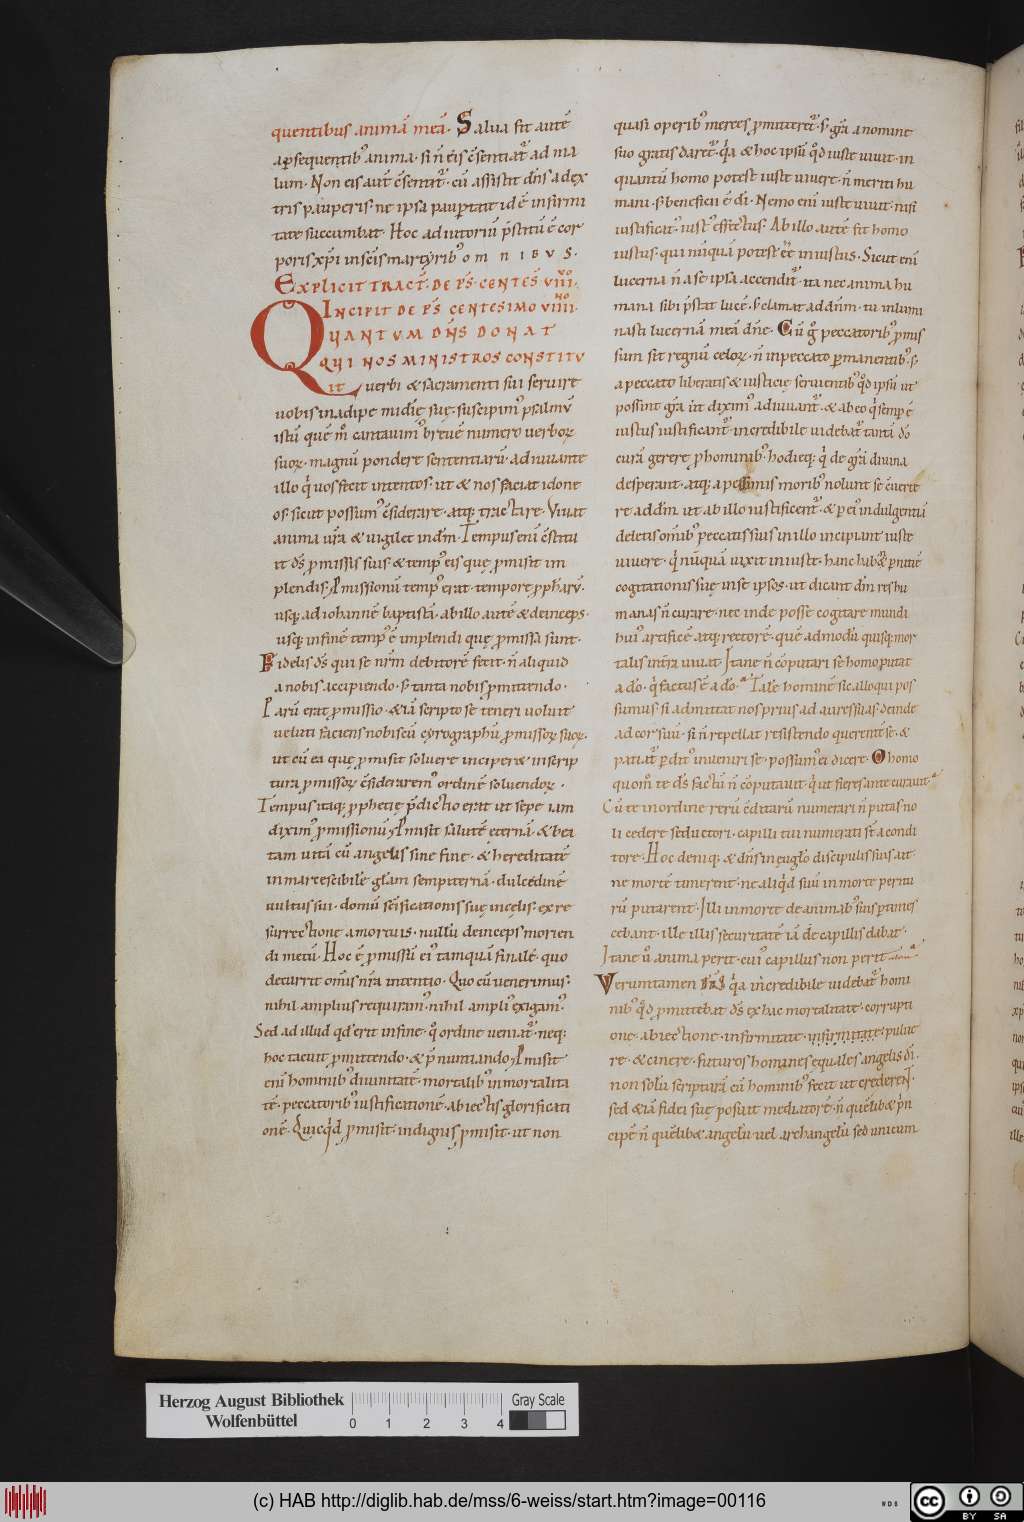 quentibus animā meā. Salua fit autē
a ꝑsequentibꝰ anima. si n̄ eis c̄sentiat᷑ ad ma
lum. Non eis aut̄ c̄sentit᷑. cū assistit dn̄s a dex
tris pauperis. ne ipsa paup̱tate id ē infirmi
tate succumbat. Hoc adiutoriū p̄stitū ē cor
poris xp̄i in sc̄is martyribꝰ omnibus.
Explicit tract̄. de ps̄. centes̄ viii.no
Incipit de ps̄ centesimo viiii.no
Quantum dn̄s donat
qui nos ministros constitu
it uerbi & sacramenti sui seruire
uobis in adipe mıdię suę. suscipimꝰ psalmū
istū quē m̊ cantauimꝰ breuē numero uerboꝝ
suoꝝ. magnū pondere sententiarū. adiuuante
illo qͥ uos fecit intentos. ut & nos faciat idone
os. sicut possumꝰ c̄siderare. atqꝫ tractare. Viuat
anima ur̄a & uigilet in dn̄m. Tempus enī c̄stitu
it ds̄ p̱missis suis. & tempꝰ eis quę p̱misit im
plendis. P̱missionū tempꝰ erat. tempore p̱pharū.
usqꝫ ad iohannē baptistā. ab illo autē & deinceps.
usqꝫ in finē tempꝰ ē implendi quę p̱missa sunt.
Fidelis ds̄ qui se nr̄m debitorē fecit. n̄ aliquid
a nobis accipiendo. s; tanta nobis p̱mittendo.
Parū erat p̱missio. & iā scripto se teneri uoluit
ueluti faciens nobiscū cyrographū p̱missoꝝ suoꝝ.
ut cū ea quę p̱misit soluere inciperet in scrip
tura p̱missoꝝ c̄sideraremꝰ ordinē soluendoꝝ.
Tempus itaqꝫ p̱phetię p̄dictio erat ut sepe iam
diximꝰ p̱missionū. P̱misit salutē ęternā. & bea
tam uitā cū angelis sine fine. & hereditatē
inmarcescibilē. gl̄am sempiternā. dulcedinē
uultus sui. domū sc̄ificationis suę in cęlis. ex re
surrectione a mortuis. nullū deinceps morien
di metū. Hoc ē p̱missū eiꝰ tamquā finale. quo
decurrit om̄is nr̄a intentio. Quo cū uenerimus.
nihil amplius requiramꝰ. nihil ampliꝰ exigamꝰ.
Sed ad illud qd erit in fine. qͦ ordine ueniat᷑. neqꝫ
hoc tacuit p̱mittendo. & p̄nuntiando. P̱misit
enī hominibꝰ diuinitatē. mortalibꝰ inmortalita
tē. peccatoribꝰ iustificationē. abiectis glorificati
onē. Quicqͥd p̱misit. indignis p̱misit. ut non
quasi operibꝰ merces p̱mitteret᷑. s; gr̄a a nomine
suo gratis daret᷑. qͥa & hoc ipsū qͦd iuste uiuit. in
quantū homo potest iuste uiuere. n̄ meriti hu
mani. s; beneficii ē dī. Nemo enī iuste uiuit. nisi
iustificatꝰ. iustꝰ effectus. Ab illo autē fit homo
iustus. qui nūquā potest eē iniustus. Sicut enī
lucerna n̄ a se ipsa accendit᷑. ita nec anima hu
mana sibi p̄stat lucē. s; clamat ad dn̄m. tu inlumi
nasti lucernā meā dn̄e. Cū g̊ peccatoribꝰ p̱mis
sum sit regnū celoꝝ. n̄ in peccato ꝑmanentibꝰ. s;
a peccato liberatis & iusticię seruientibꝰ qͦd ipsū ut
possint gr̄a ut diximꝰ adiuuant᷑. & ab eo qͥ semp̱ ē
iustus iustificant᷑. incredibile uidebat᷑ tantā dō
curā gerere p̱ hominibꝰ. hodieqꝫ qͥ de gr̄a diuina
desperant. atqꝫ a pessimis moribꝰ nolunt se c̄uerte
re ad dn̄m. ut ab illo iustificent᷑. & ꝑ eiꝰ indulgentiā
deletis om̄ibꝰ peccatis suis in illo incipiant iuste
uiuere. qͥ nūquā uixit iniuste. hanc habē ꝑnitiē
cogitationis suę in se ipsos. ut dicant dn̄m res hu
manas n̄ curare. nec inde posse cogitare mundi
huiꝰ artificē atqꝫ rectorē. quē admodū quisqꝫ mor
talis in terra uiuat. Itane n̄ c̄putari se homo putat
a dō. qͥ factus ē a dō. Talē hominē sic alloqui pos
sumus. si admittat nos prius ad aures suas. deinde
ad cor suū. si n̄ repellat resistendo querentē se. &
patiat᷑ ꝑditꝰ inueniri se. possumꝰ ei dicere. O homo
quom̊ te ds̄ factū n̄ c̄putauit. qͥ ut fieres ante curauit.
Cū te in ordine rerū c̄ditarū numerari n̄ putas no
li cedere seductori. capilli tui numerati st̄ a condi
tore. Hoc deniqꝫ & dn̄s in euglō discipulis suis ait
ne mortē timerent. ne aliqͥd suū in morte peritu
rū putarent. Illi in morte de animabꝰ suis ꝑtimes
cebant. ille illis securitatē iā de capillis dabat.
Itane ū anima perit. cuiꝰ capillus non perit.
Verumtamen qͥa incredibile uidebat᷑ homi
nibꝰ qͦd p̱mittebat ds̄ ex hac mortalitate. corrupti
one. abiectione. infirmitate. infirmitate. pulue
re. & cinere. futuros homines ęquales angelis dī.
non solū scripturā cū hominibꝰ fecit ut crederent.
sed & iā fidei suę posuit mediatorē. n̄ quēlibet pͥn
cipē n̄ quēlibet angelū uel archangelū sed unicum
Herzog August Bibliothek
Wolfenbüttel
0 1 2 3 4
Gray Scale
(c) HAB http://diglib.hab.de/mss/6-weiss/start.htm?image=00116
WDB
cc BY SA